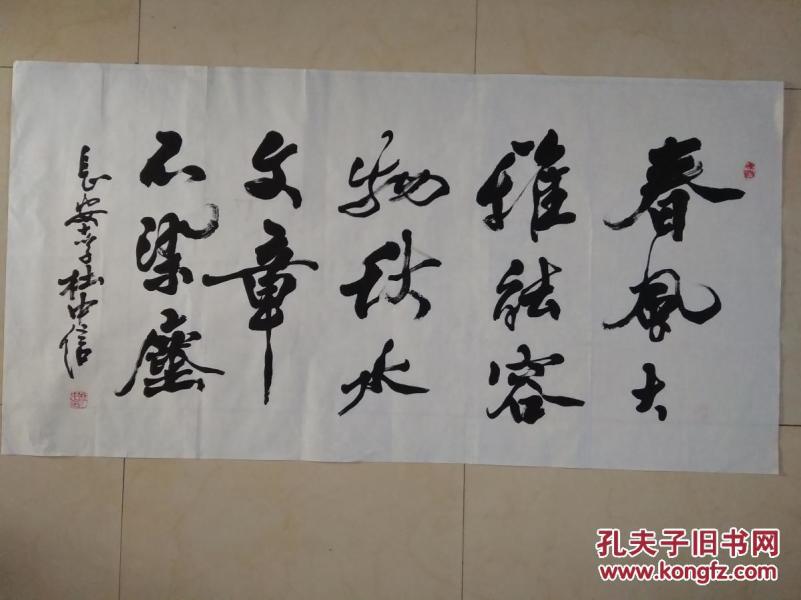 春風大
雅能容
物秋水
文章
不染塵
長安李杜中信
孔夫子旧书网
www.kongfz.com